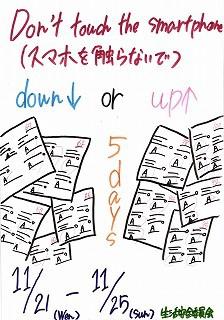 Don't touch the smartphone
(スマホを触らないで)
down↓ or up↑
5days
11/21(Wen) - 11/25(Sun)